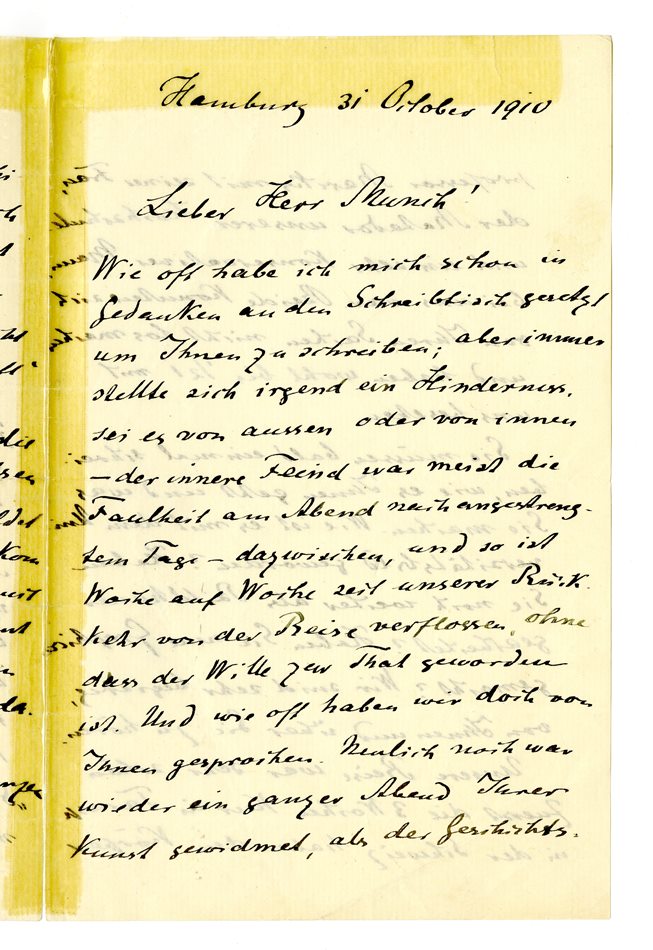 Hamburg 31 October 1910
Lieber Herr Munch!
Wie oft habe ich mich schon in
Gedanken an den Schreibtisch gesetzt
um Ihnen zu schreiben; aber immer
stellte sich irgend ein Hinderniss,
sei es von aussen oder von innen
– der innere Feind war meist die
Faulheit am Abend nach angestreng-
tem Tage – dazwischen, und so ist
Woche auf Woche seit unserer Rück-
kehr von der Reise verflossen, ohne
dass der Wille zur That geworden
ist. Und wie oft haben wir doch von
Ihnen gesprochen. Neulich noch war
wieder ein ganzer Abend Ihrer
Kunst gewidmet, als der Geschichts-